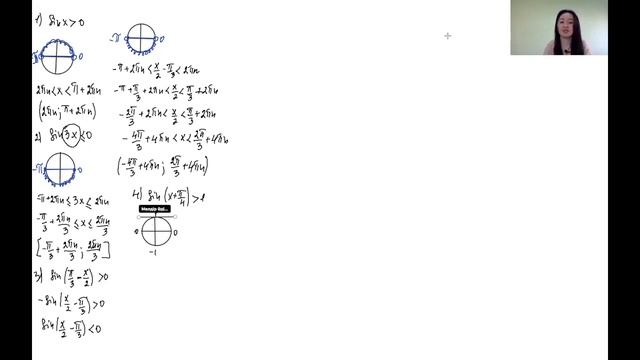 1) sin x > 0
π 0
2πn < x < π + 2πn
(2πn; π + 2πn)
2) sin 3x ≤ 0
-π 0
-π + 2πn ≤ 3x ≤ 2πn
-π/3 + 2πn/3 ≤ x ≤ 2πn/3
[-π/3 + 2πn/3; 2πn/3]
3) sin(π/3 - x/2) > 0
-sin(x/2 - π/3) > 0
sin(x/2 - π/3) < 0
-π 0
-π + 2πn < x/2 - π/3 < 2πn
-π + π/3 + 2πn < x/2 < π/3 + 2πn
-2π/3 + 2πn < x/2 < π/3 + 2πn
-4π/3 + 4πn < x < 2π/3 + 4πn
(-4π/3 + 4πn; 2π/3 + 4πn)
4) sin(x + π/4) > 1
0 0
-1